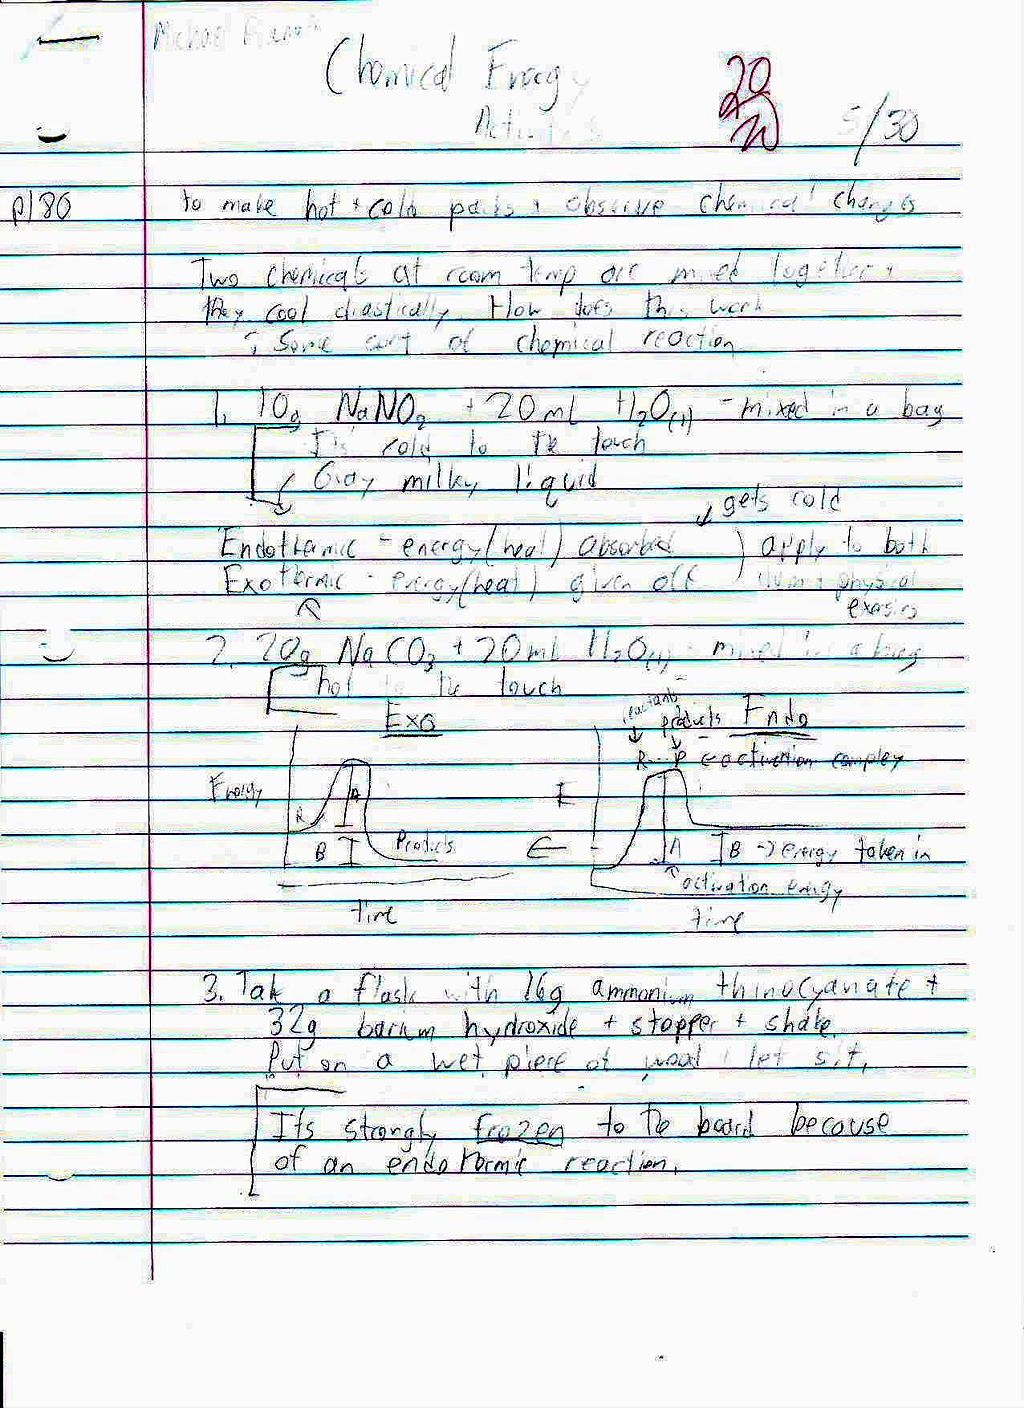 Michael
Chemical Energy
Activities
20
20
5/30
p180
to make hot + cold packs + observe chemical changes
Two chemicals at room temp are mixed together +
they cool drastically How does this work
Some sort of chemical reaction
1. 10g NaNO2 + 20mL H2O(l) - mixed in a bag
It's cold to the touch
Gray milky liquid
gets cold
Endothermic - energy(heat) absorbed ) apply to both
Exothermic - energy(heat) given off ) chem + physical
2. 20g NaCO3 + 20mL H2O(l) - mixed in a bag
hot to the touch
Exo
reactants
products Endo
R P ← activation complex
Energy
A
R
E
B
Products
←
A
B → energy taken in
activation energy
time
time
3. Take a flask with 16g ammonium thinocyanate +
32g barium hydroxide + stopper + shake.
Put on a wet piece of wood + let sit.
Its strongly frozen to the board because
of an endothermic reaction.